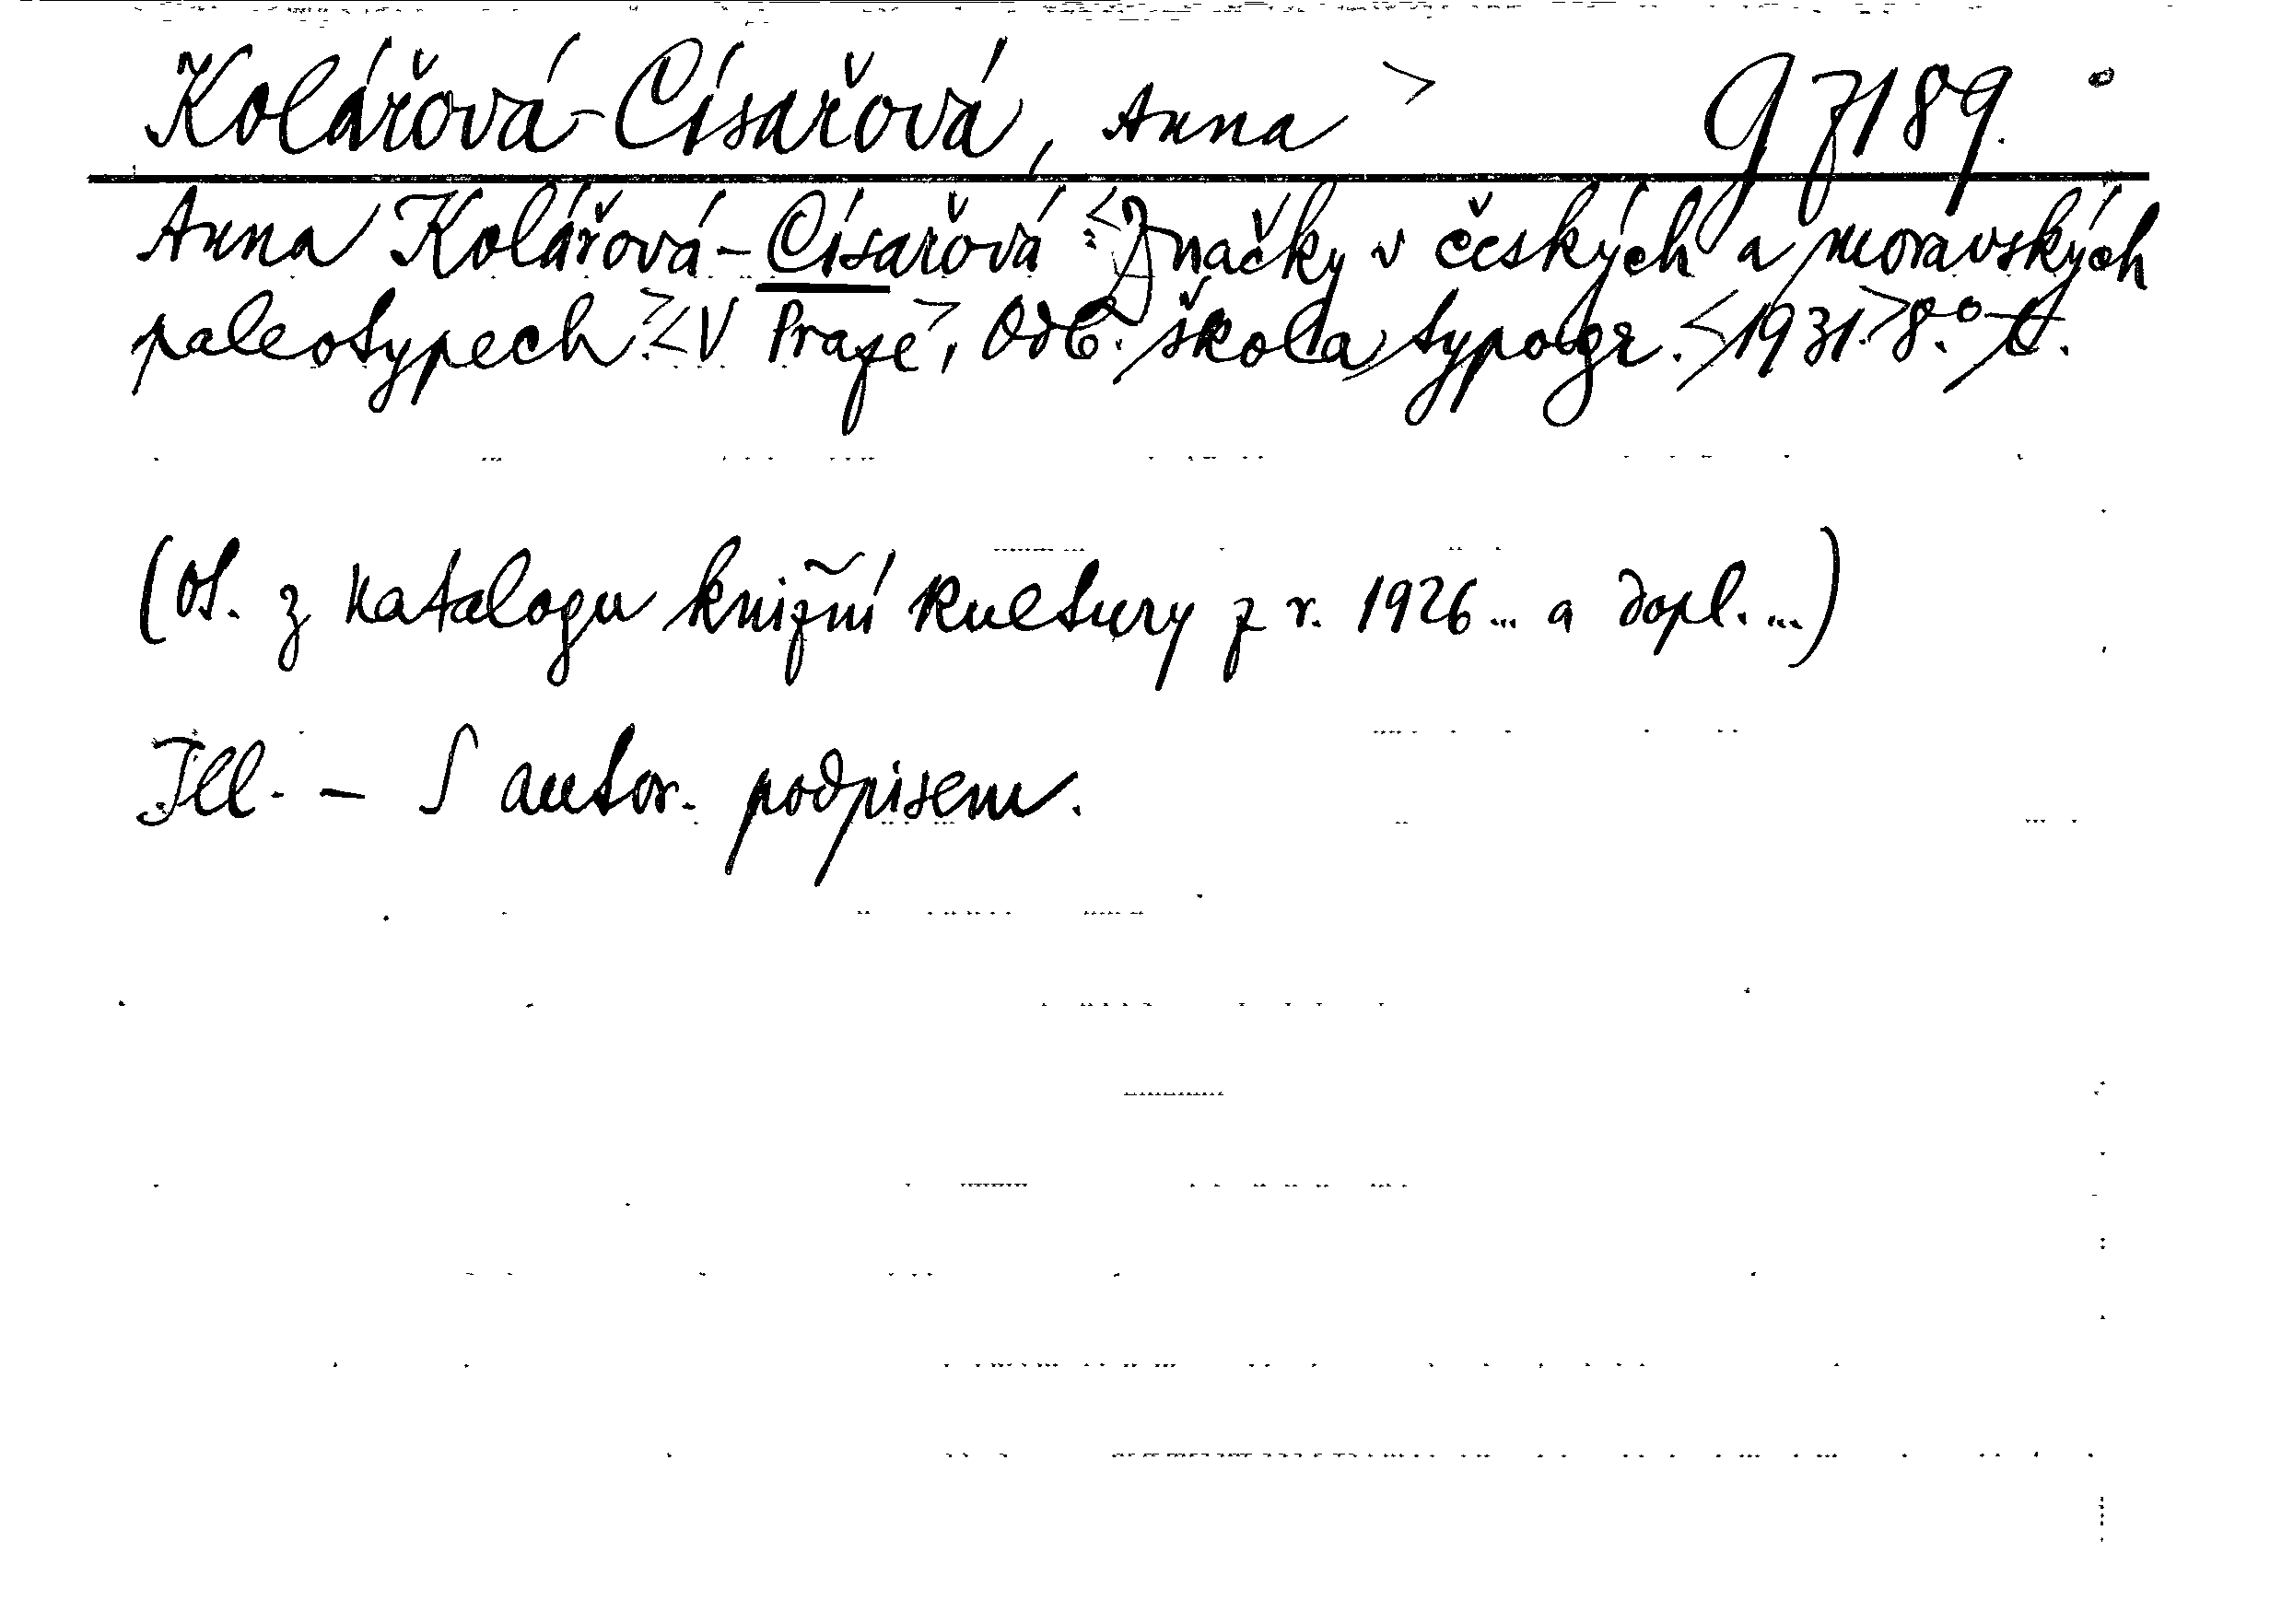 Kolářová-Císařová, Anna> g 7189.
Anna Kolářová-Císařová:<Značky v českých a moravských
paleotypech.><V Praze>, Odb. škola typogr. <1931.> 8.° t.
(Ot. z Katalogu knižní kultury z r. 1926... a dopl. ...)
Ill. - S autor. podpisem.